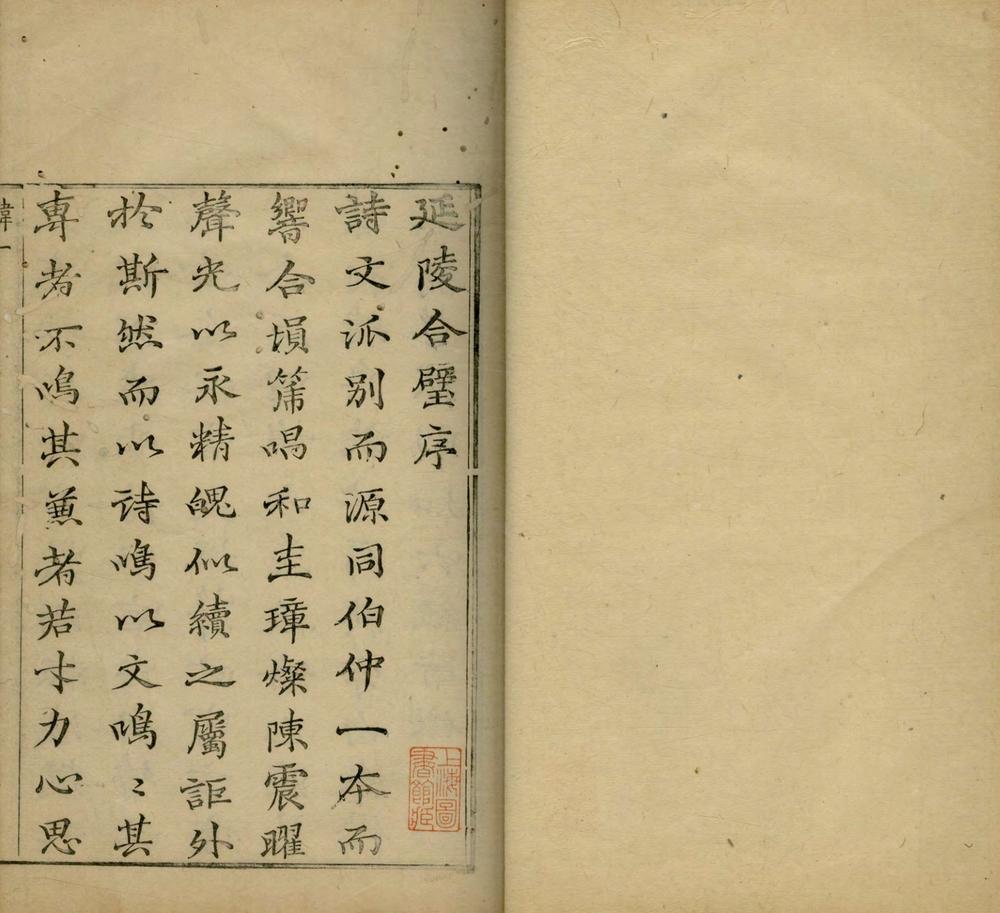 延陵合璧序
詩文派別而源同伯仲一本而
響合壎箎唱和圭璋燦陳震曜
聲光以永精魄似續之屬詎外
於斯然而以诗鳴以文鳴〻其
專者不鳴其蒹者若才力心思
上海圖
書館藏